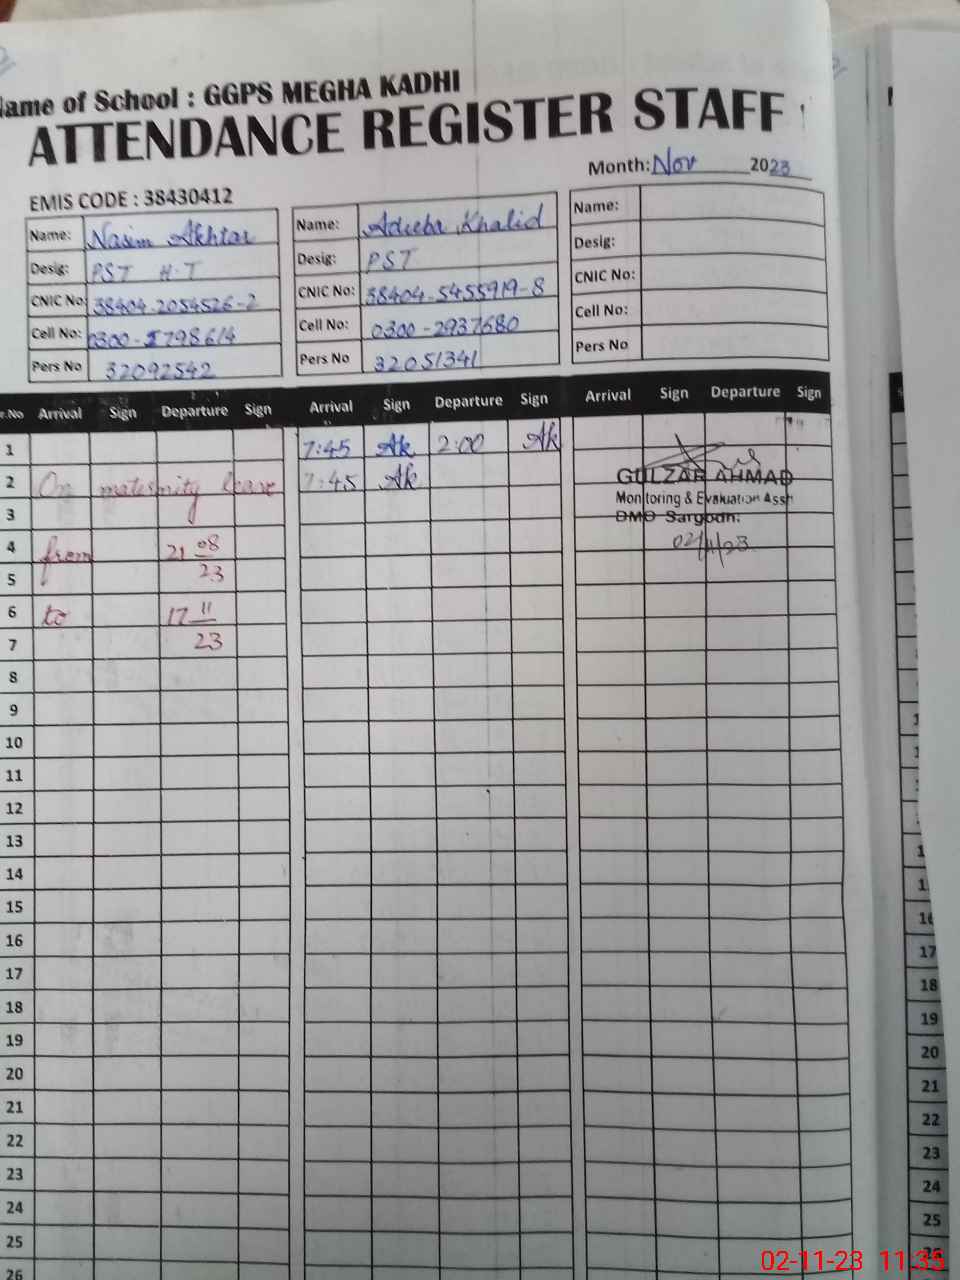 Name of School : GGPS MEGHA KADHI
ATTENDANCE REGISTER STAFF
Month: Nov 2023
EMIS CODE : 38430412
Name: Nasim Akhtar
Desig: PST H.T
CNIC No: 38404-2054526-2
Cell No: 0300-5798614
Pers No 32092542
Name: Adeeba Khalid
Desig: PST
CNIC No: 38404-5455919-8
Cell No: 0300-2937680
Pers No 32051341
Name:
Desig:
CNIC No:
Cell No:
Pers No
r.No Arrival Sign Departure Sign Arrival Sign Departure Sign Arrival Sign Departure Sign
1 7:45 Ak 2:00 Ak
2 On maternity leave 7:45 Ak
GULZAR AHMAD
Monitoring & Evaluation Asst
DMO Sargodh
02/11/23
3
4 from 21 08
5 23
6 to 17 11
7 23
8
9
10
11
12
13
14
15
16
17
18
19
20
21
22
23
24
25
26
16
17
18
19
20
21
22
23
24
25
02-11-23 11:35